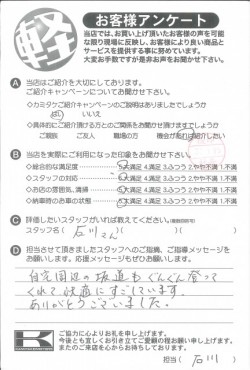 軽
お客様アンケート
当店では、お買い上げ頂いたお客様の声を可能
な限り現場に反映し、お客様により良い商品と
サービスを提供する事に努めています。
大変お手数ですが是非お声をお聞かせ下さい。
A 当店はご紹介を大切にしております。
ご紹介キャンペーンについてお聞かせ下さい。
◇カミタケご紹介キャンペーンのご説明はありましたでしょうか
はい いいえ
◇具体的にご紹介頂ける方とのご関係をお聞かせ頂けますでしょうか
ご親戚 ご友人 職場の方 機会があれば紹介したい
B 当店を実際にご利用になった印象をお聞かせ下さい。
◇総合的な満足度 5.大満足 4.満足 3.ふつう 2.やや不満 1.不満
◇スタッフの対応 5.大満足 4.満足 3.ふつう 2.やや不満 1.不満
◇お店の雰囲気、清掃 5.大満足 4.満足 3.ふつう 2.やや不満 1.不満
◇納車時のお車の状態 5.大満足 4.満足 3.ふつう 2.やや不満 1.不満
C 評価したいスタッフがいれば教えてください。(複数回答可)
スタッフ名( 石川さん )( )
D 担当させて頂きましたスタッフへのご指摘、ご指導メッセージを
お願いします。応援メッセージもぜひお聞かせ下さい。
自宅周辺の坂道もぐんぐん登って
くれて快適にすごしています。
ありがとうございました。
K
ご協力に心よりお礼を申し上げます。
今後とも宜しくお引き立てご愛顧の程お願い申し上げます。
またのご来店を心からお待ちしております。
担当( 石川 )